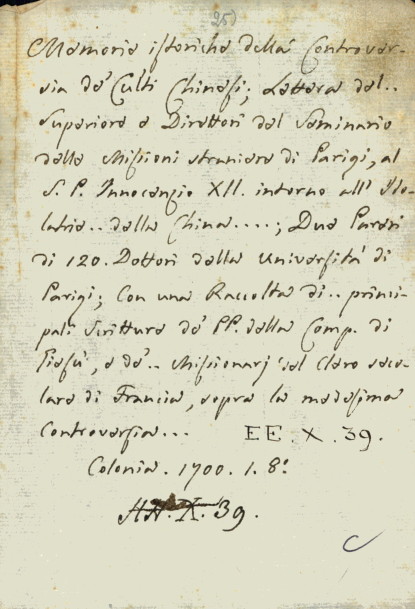 25)
Memorie istoriche della Controver-
sia de' Culti Chinesi; Lettera del..
Superiore e Direttori del Seminario
delle Missioni straniere di Parigi, al
S. P. Innocenzio XII. intorno all' Ido-
latrie.. della China....; Due Pareri
di 120. Dottori della Università di
Parigi; Con una Raccolta di.. princi-
pali Scritture de' PP. della Comp. di
Giesù, e de'.. Missionarj del Clero seco-
lare di Francia, sopra la medesima
Controversia...
EE. X. 39.
Colonia. 1700. 1. 8º
HH. X. 39.